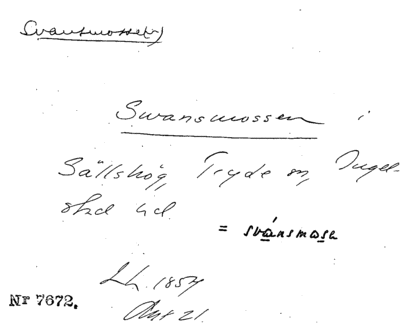 Svansmosse(n)
Swansmossen i
Sällshög, Tryde sn, Ingel-
stad hd.
= svánsmosa
Lh. 1854
Akt 21.
Nr 7672.